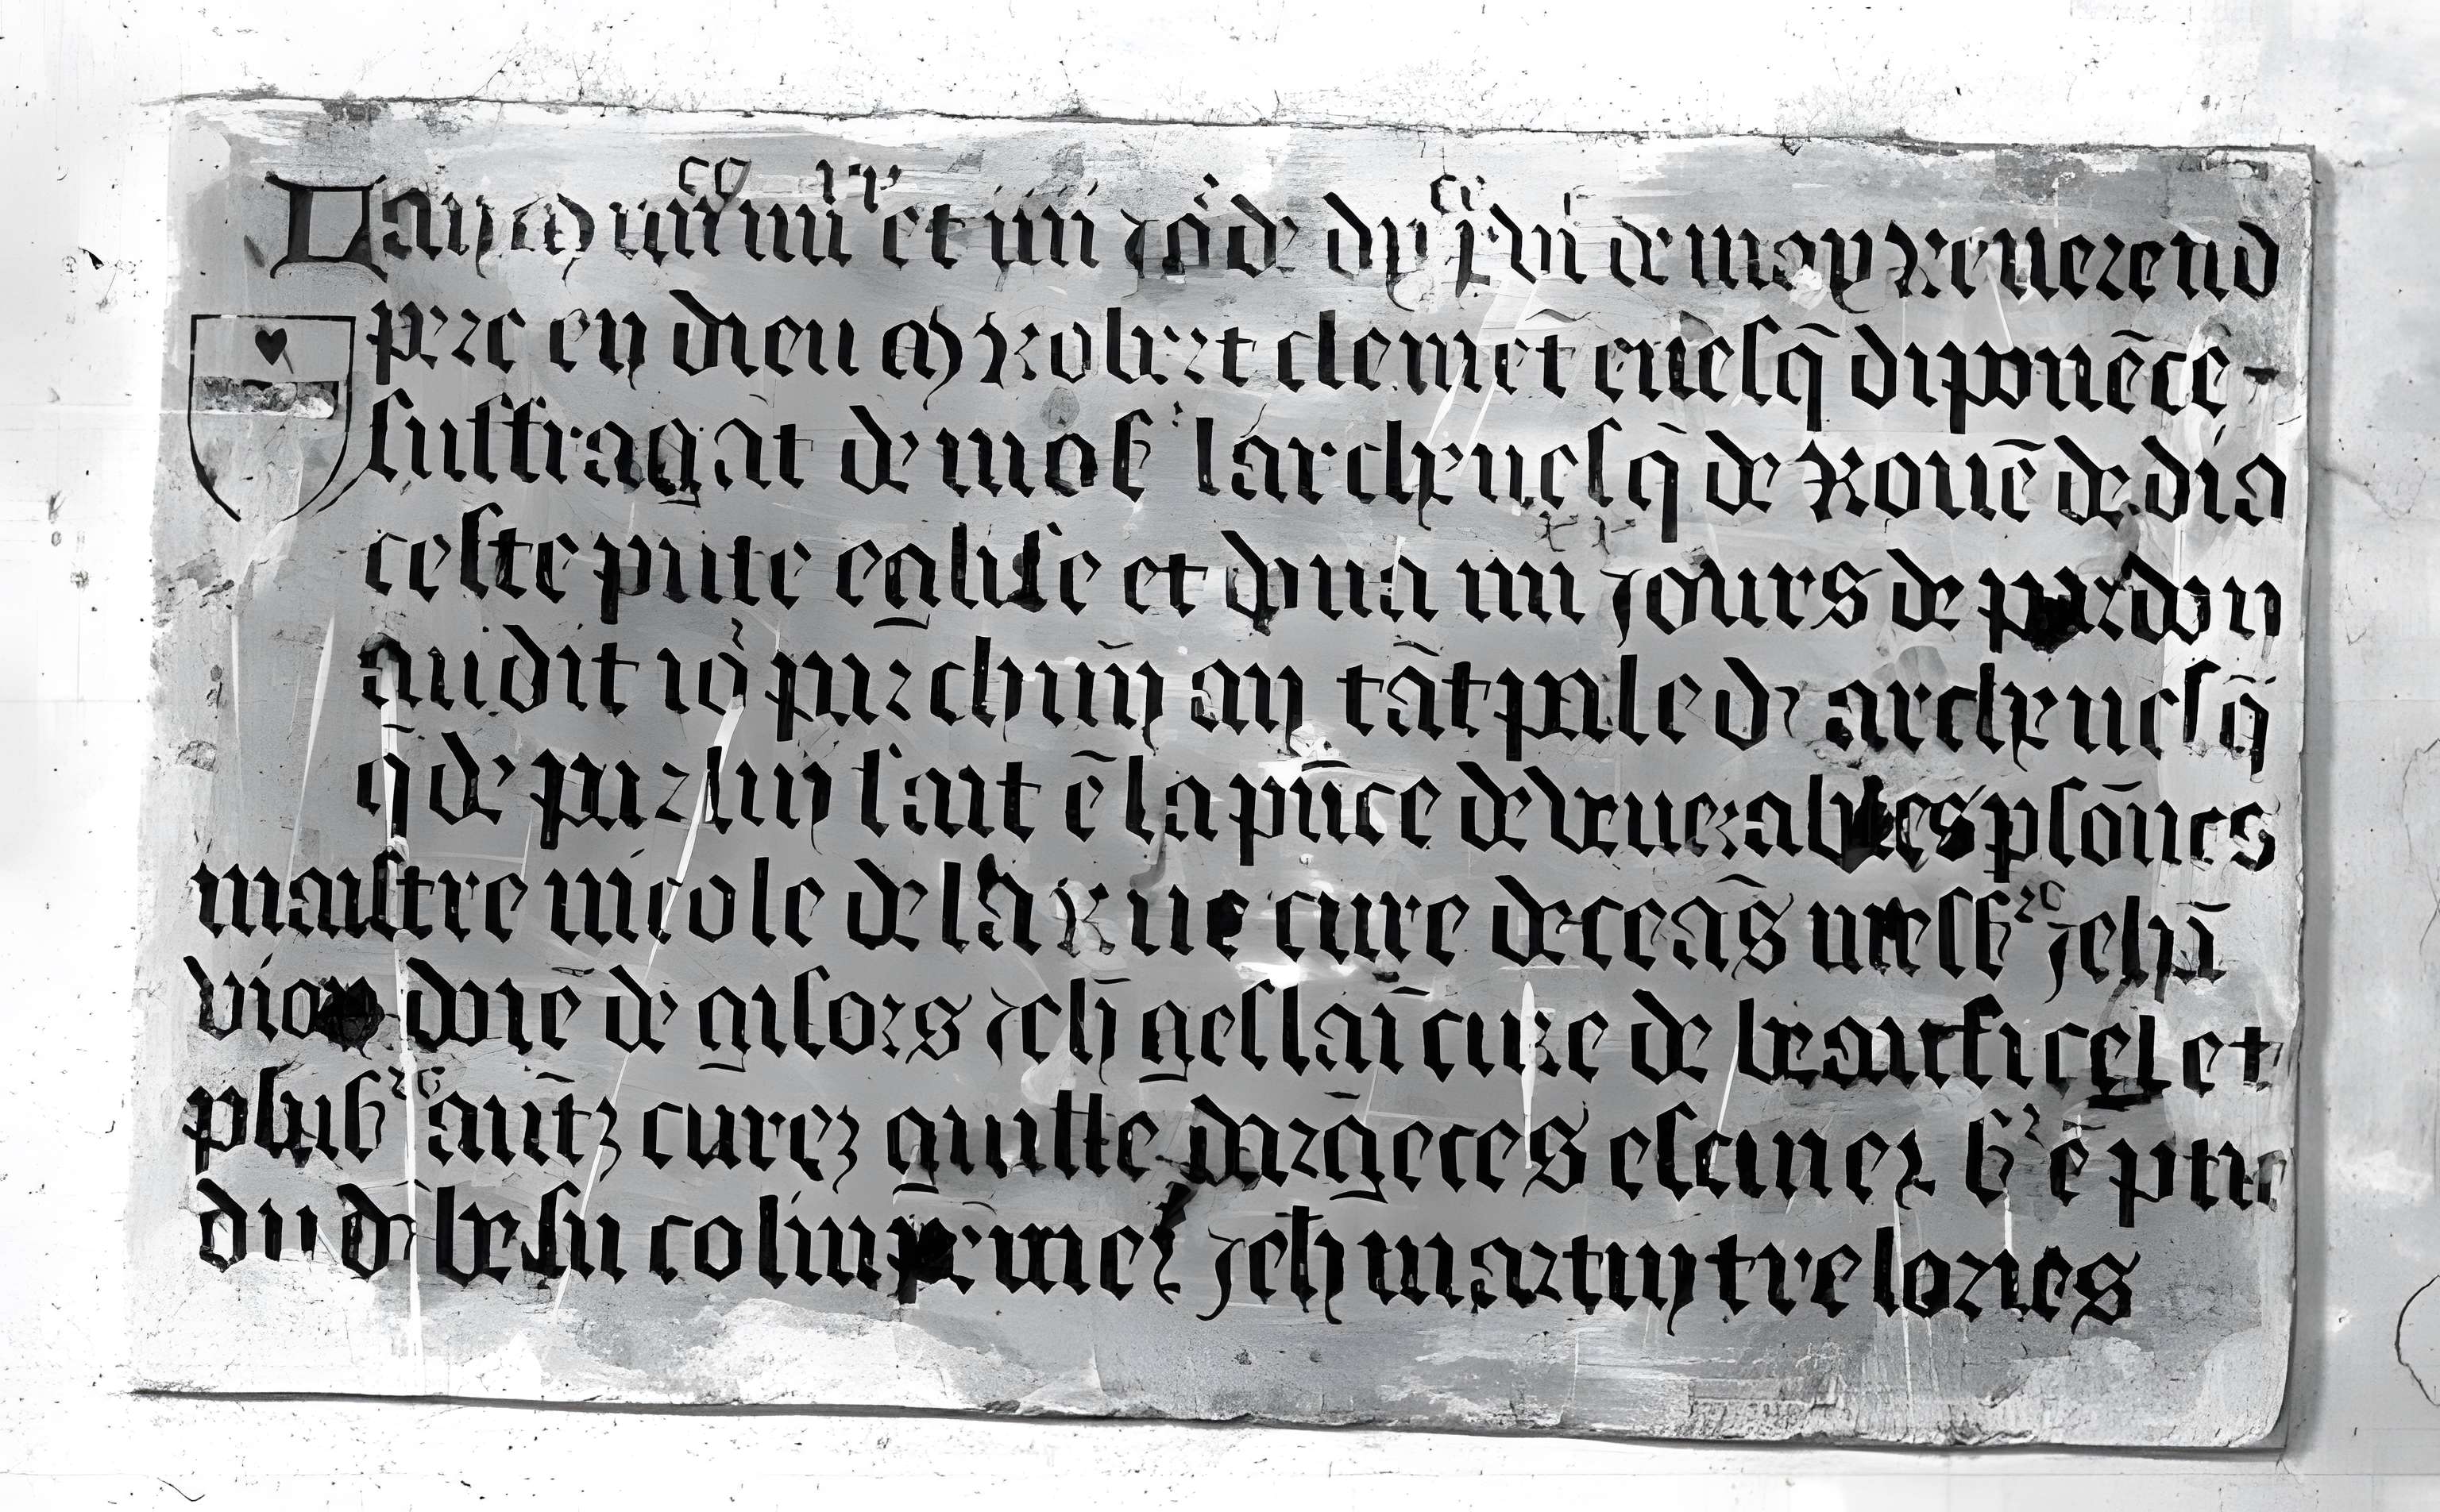 Lan m iiii^cc iiii^xx et iiii jo^r de dy^ce p^r dui de may Reuerend
pere en dieu m Robert clemēt euesq̄ dipponēce
suffragāt de mos^r larcheuesq̄ de Rouē dedia
ceste pn̄te eglise et dōna iiii^xx jours de pardon
audit io^r par chūn an tāt pale d^r archeuesq̄
q̄ de par luy fait ē la pn̄ce de venerables psōnes
maistre nicole de la Rue cure de ceās messes^rs Jehā
vion doiē de gisors Jeh geslaī cure de beauficel et
plus^rs aūtz curez guille dargēces escuier s^r ē ptie
dud besu colin premer Jeh martin tresories